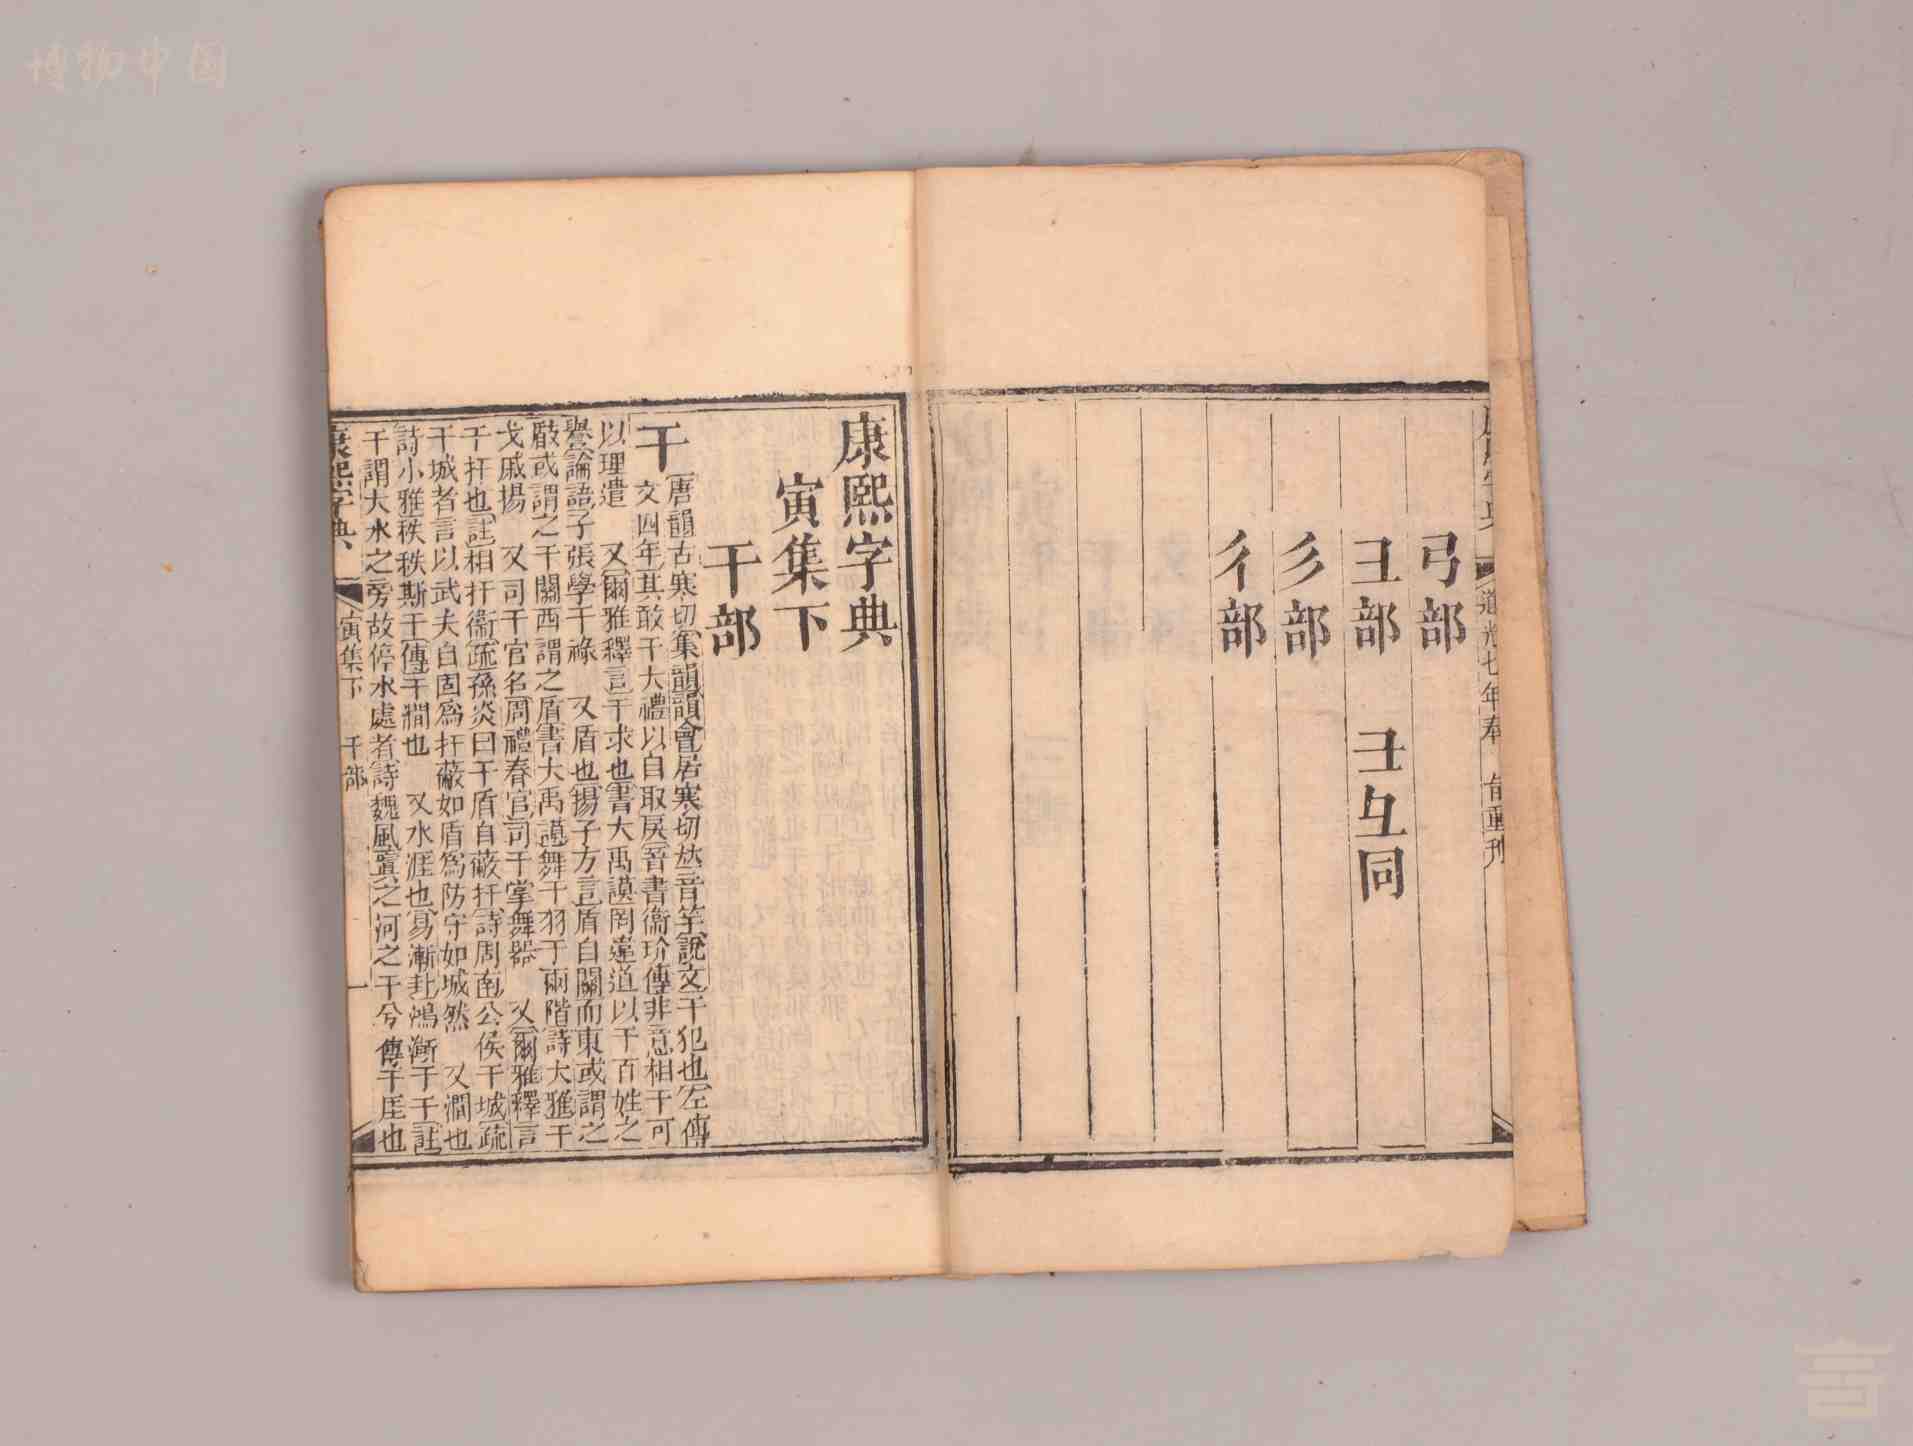 博物中国
道光七年奉 旨重刊
弓部
彐部 彑互同
彡部
彳部
康熙字典
寅集下
干部
干 唐韻古寒切集韻韻會居寒切𠀤音竿說文干犯也左傳
文四年其敢干大禮以自取戾晉書衞玠傳非意相干可
以理遣 又爾雅釋言干求也書大禹謨罔違道以干百姓之
譽論語子張學干祿 又盾也揚子方言盾自關而東或謂之
瞂或謂之干關西謂之盾書大禹謨舞干羽于兩階詩大雅干
戈戚揚 又司干官名周禮春官司干掌舞器 又爾雅釋言
干扞也註相扞衞疏孫炎曰干盾自蔽扞詩周南公侯干城疏
干城者言以武夫自固爲扞蔽如盾爲防守如城然 又澗也
詩小雅秩秩斯干傳干澗也 又水涯也易漸卦鴻漸于干註
干謂大水之旁故停水處者詩魏風寘之河之干兮傳干厓也
康熙字典 寅集下 干部 一